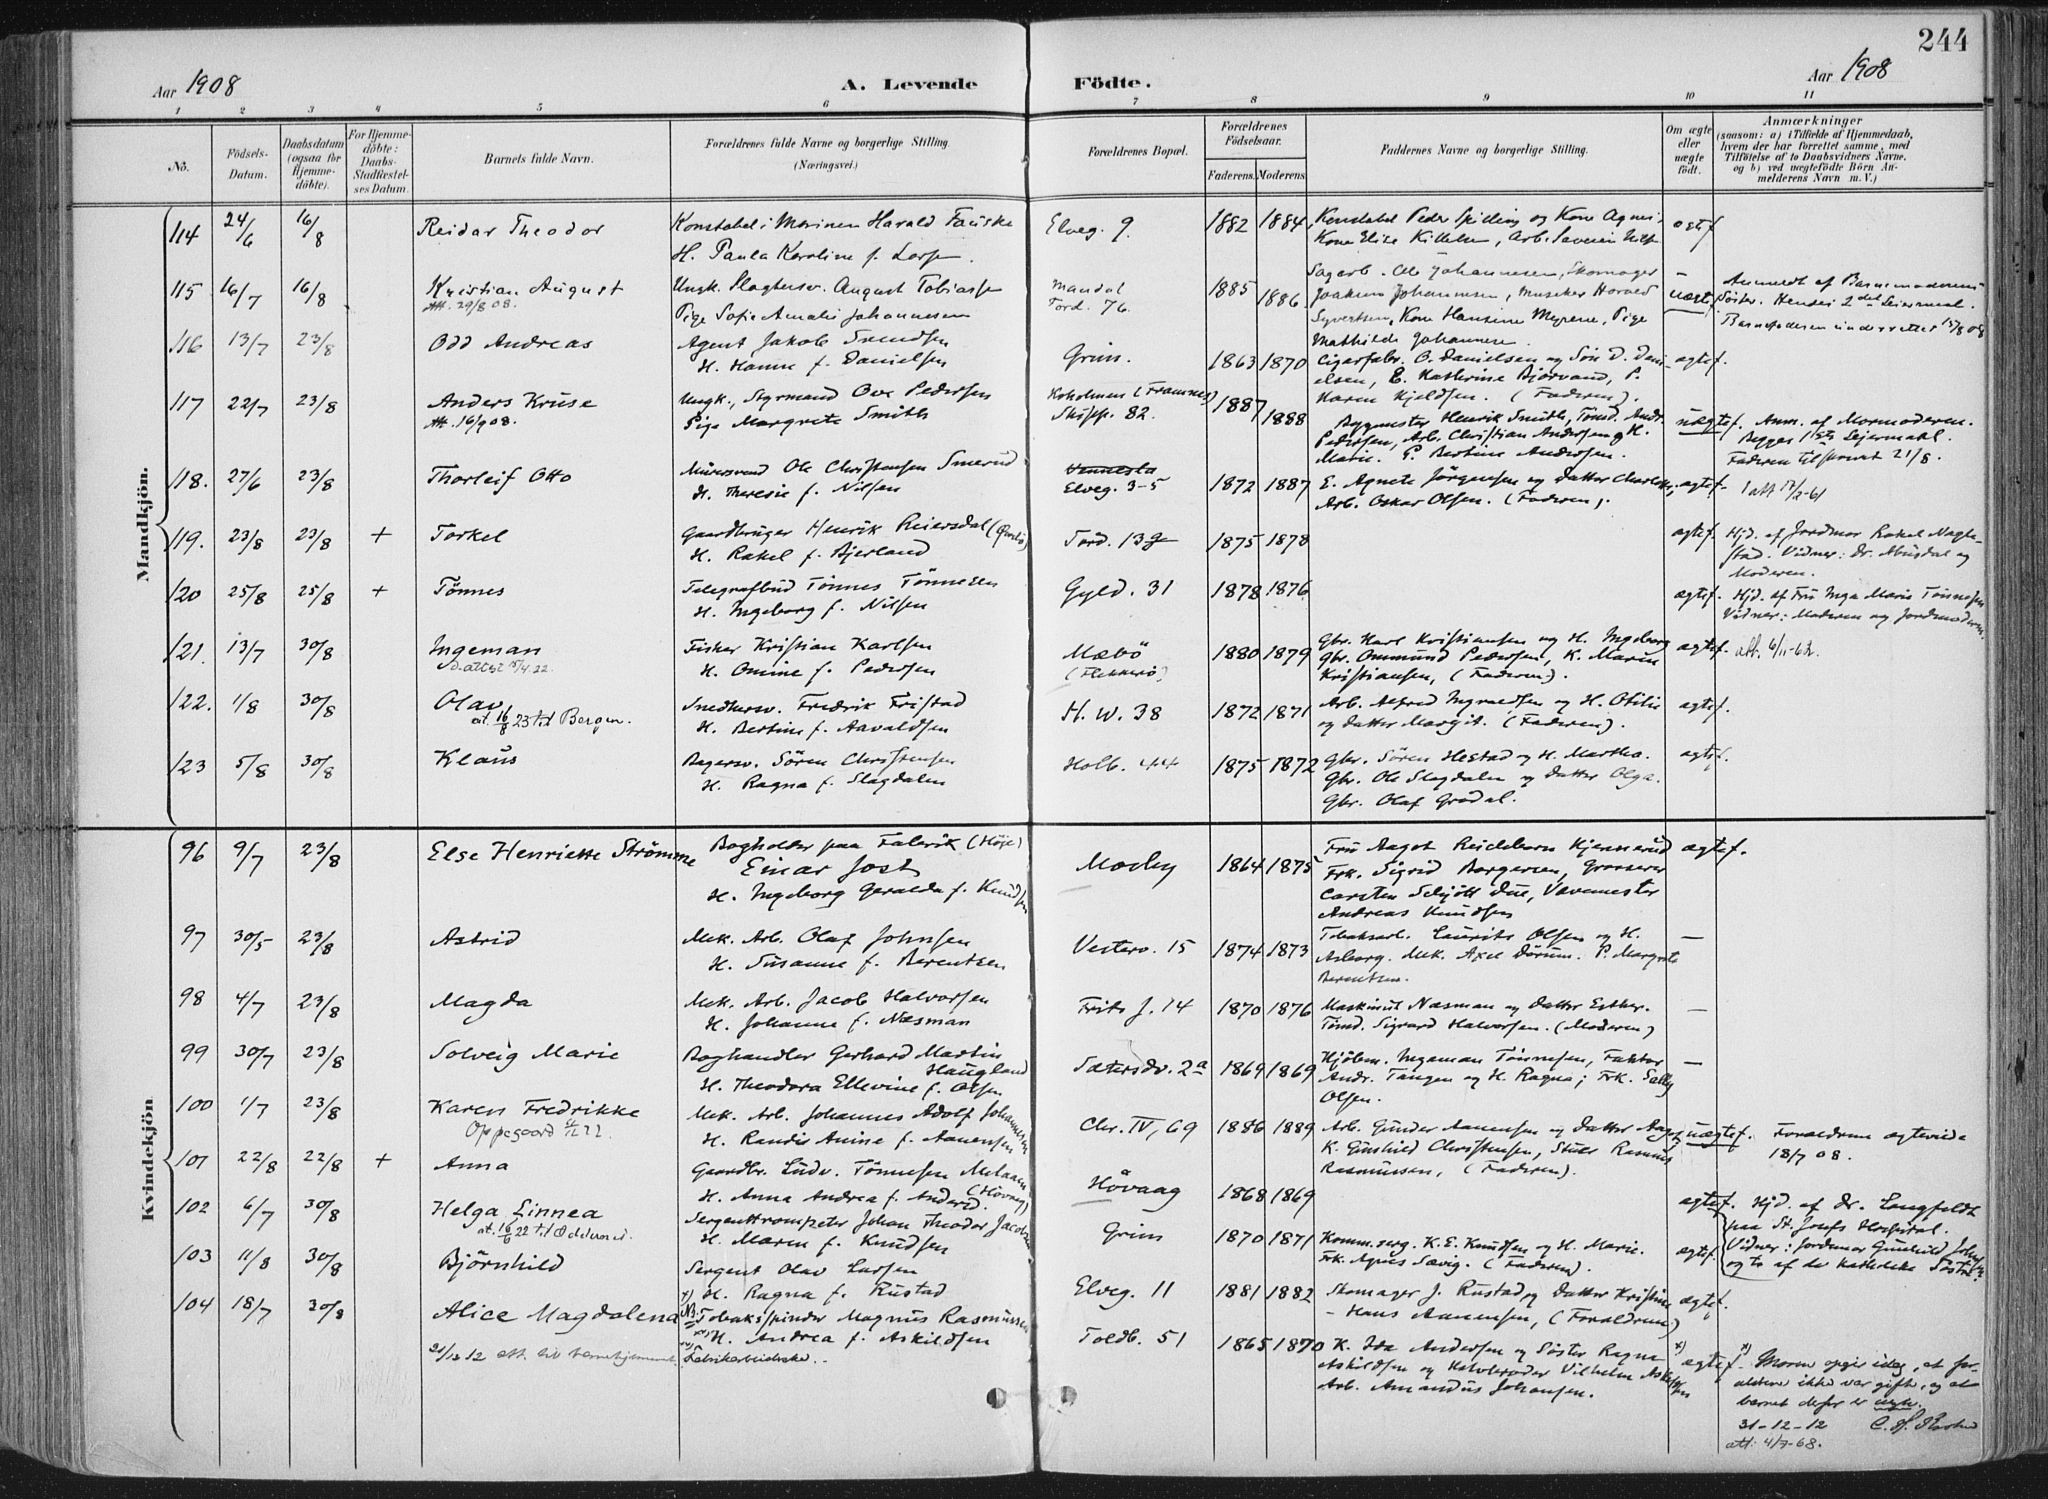 244
Aar 1908
A. Levende
Födte.
Aar 1908
1 2 3 4 5 6 7 8 9 10 11
No.
Födsels-
Datum.
Daabsdatum
(ogsaa for
Hjemme-
döbte).
For Hjemme-
döbte:
Daabs-
Stadfæstel-
ses Datum.
Barnets fulde Navn.
Forældrenes fulde Navne og borgerlige Stilling.
(Næringsvei.)
Forældrenes Bopæl.
Forældrenes
Födselsaar.
Faderens. Moderens.
Faddernes Navne og borgerlige Stilling.
Om ægte
eller
uægte
födt.
Anmærkninger
(saasom: a) i Tilfælde af Hjemmedaab,
hvem der har forrettet samme, med
Tilföielse af to Daabsvidners Navne,
og b) ved uægtefödte Börn An-
melderens Navn m. V.)
Mandkjön.
114 24/6 16/8 Reidar Theodor
Konstabel i Marinen Harald Fauske
H. Paula Karoline f.
Elveg. 9. 1882 1884
Konstabel Peder Spilling og Kone Agnes,
Kone Elise
115 16/7 16/8 Kristian August
Att. 29/8 08.
Ungk. Slagtersv. August Tobiass
Pige Sofie Amalie Johannesen
Mandal
Tord. 76. 1885 1886
Sagarb. Ole Johannesen, Skomager
Joakim Johannesen, Musiker Harald
Syvertsen, Kone Hansine Myrene, Pige
Mathilde Johannesen
uægtef.
Anmeldt af Barnemoderens
Söster. Hendes 2det Leiermaal.
Barnefaderen underrettet 15/8 08
116 13/7 23/8 Odd Andreas
Agent Jakob Svendsen
H. Hanne f. Danielsen
Grim. 1863 1870
Cigarfabr. O. Danielsen og Sön D. Dani-
elsen, E. Kathrine Bjorvand, P.
Karen Kjeldsen. (Faderen).
ægtef.
117 22/7 23/8 Anders Kruse
Att. 16/9 08.
Ungk., Styrmand Ove Pedersen
Pige Margrete Smith
Koholmen (Framnes)
Skipp. 82. 1887 1888
Bygmester Henrik Smith, Tömd. Andr.
Pedersen, Arb. Christian Andersen og H.
Marie. P. Bertine Andersen.
uægtef. Anm. af Mormoderen.
Begges 1ste Leiermaal.
Faderen tilskrevet 21/8.
118. 27/6 23/8 Thorleif Otto
Murersvend Ole Christensen Smerud
H. Theresie f. Nilsen
Vennesla
Elveg. 3-5 1872 1887
E. Agnete Jörgensen og Datter Charlotte,
Arb. Oskar Olsen. (Faderen).
ægtef.
1 att 17/2-61
119. 23/8 23/8 + Torkel
Gaardbruger Henrik Reiersdal
H. Rakel f. Bjerland
Tord. 13 1875 1878
ægtef.
Hjd. af Jordmor Rakel Nagle-
stad. Vidner: Dr. Abusdal og
Moderen.
120 25/8 25/8 + Tönnes
Telegrafbud Tönnes Tönnesen
H. Ingeborg f. Nilsen
Gyld. 31 1878 1876
ægtef.
Hjd. af Fru Inga Marie Tönnesen
Vidner: Moderen og Jordmoderen.
121. 13/7 30/8 Ingeman
D. attest 15/4.22
Fisker Kristian Karlsen
H. Omine f. Pedersen
Mæbö
(Flekkerö) 1880 1879
Gbr. Karl Kristiansen og H. Ingeborg
Gbr. Ommund Pedersen, K. Maren
Kristiansen, (Faderen).
ægtef. att. 6/11-62.
122. 1/8 30/8 Olav
at. 16/8 23 til Bergen.
Snedkersv. Fredrik Fristad
H. Bertine f. Aavaldsen
H. W. 38 1872 1871
Arb. Alfred Ingvaldsen og H. Otilie
og Datter Margit. (Faderen).
ægtef.
123 5/8 30/8 Klaus
Bagersv. Sören Christensen
H. Ragna f. Slagdalen
Holb. 44 1875 1872
Gbr. Sören Hestad og H. Martha.
Gbr. Ole Slagdalen og Datter Olga.
Gbr. Olaf Grödal.
ægtef.
Kvindekjön
96 9/7 23/8 Else Henriette Strömme
Bogholder paa Fabrik (Höie)
Einar Jost
H. Ingeborg Geralda f. Knudsen
Mosby 1864 1875
Fru Aagot Reichborn Kjennerud
Frk. Sigrid Borgersen, Grosserer
Carsten Schjött Due, Vævemester
Andreas Knudsen
ægtef.
97 30/5 23/8 Astrid
Mek. Arb. Olaf Johnsen
H. Susanne f. Berentsen
Vesterv. 15 1874 1873
Tobaksarb. Laurits Olsen og H.
Asborg. Mek. Axel Dörum. P. Margrete
Berentsen.
—
98 4/7 23/8 Magda
Mek. Arb. Jacob Halvorsen
H. Johanne f. Næsman
Frits J. 14 1870 1876
Maskinist Næsman og Datter Esther.
Tömd. Sigvard Halvorsen. (Moderen)
—
99 30/7 23/8 Solveig Marie
Boghandler Gerhard Martin
Haugland
H. Theodora Ellevine f. Olsen
Sætersdv. 2a 1869 1869
Kjöbm. Ingeman Tönnesen, Faktor
Andr. Tangen og H. Ragna; Frk. Sally
Olsen.
—
100 1/7 23/8 Karen Fredrikke
Oppegaard 22.
Mek. Arb. Johannes Adolf Johannesen
H. Randis Amine f. Aanensen
Chr. IV, 69 1886 1889
Arb. Gunder Aanensen og Datter Aagot
K. Gunhild Christensen, Stuer Rasmus
Rasmussen, (Faderen).
uægtef. Forældrene ægteviede
18/7 08.
101 22/8 22/8 + Anna
Gaardbr. Ludv. Tönnesen
(Hövaag)
H. Anna Andrea f. Anders
Hövaag 1868 1869
ægtef. Hjd. af Dr. Langfeldt
paa St. Josefs Hospital.
Vidner: Jordmor Gunhild Johnsen
og to af de katholske Söstre.
102 6/7 30/8 Helga Linnea
at. 16/6 22 til Oddernes.
Sergenttrompeter Johan Theodor Jacobsen
H. Maren f. Knudsen
Grim 1870 1871
Komm.serg. K. E. Knudsen og H. Marie.
Frk. Agnes Sævig. (Faderen).
ægtef.
103 11/8 30/8 Björnhild
Sergent Olav Larsen
H. Ragna f. Rustad
Elveg. 11 1881 1882
Skomager J. Rustad og Datter Kristine
– Hans Aanensen, (Forældrene)
ægtef.
104 18/7 30/8 Alice Magdalena
31/12 12 att.
Tobaksspinder Magnus Rasmussen
H. Andrea f. Askildsen
Fabrikarbeiderske.
Toldb. 51 1865 1870
K. Ida Andersen og Söster Ragna
Askildsen og Halvbroder Vilhelm Askildsen
Arb. Amandus Johansen.
x) ægtef.
x) Moren opgir idag, at for-
ældrene ikke var gifte, og at
barnet derfor er uægte.
31-12-12
att. 4/7-68.